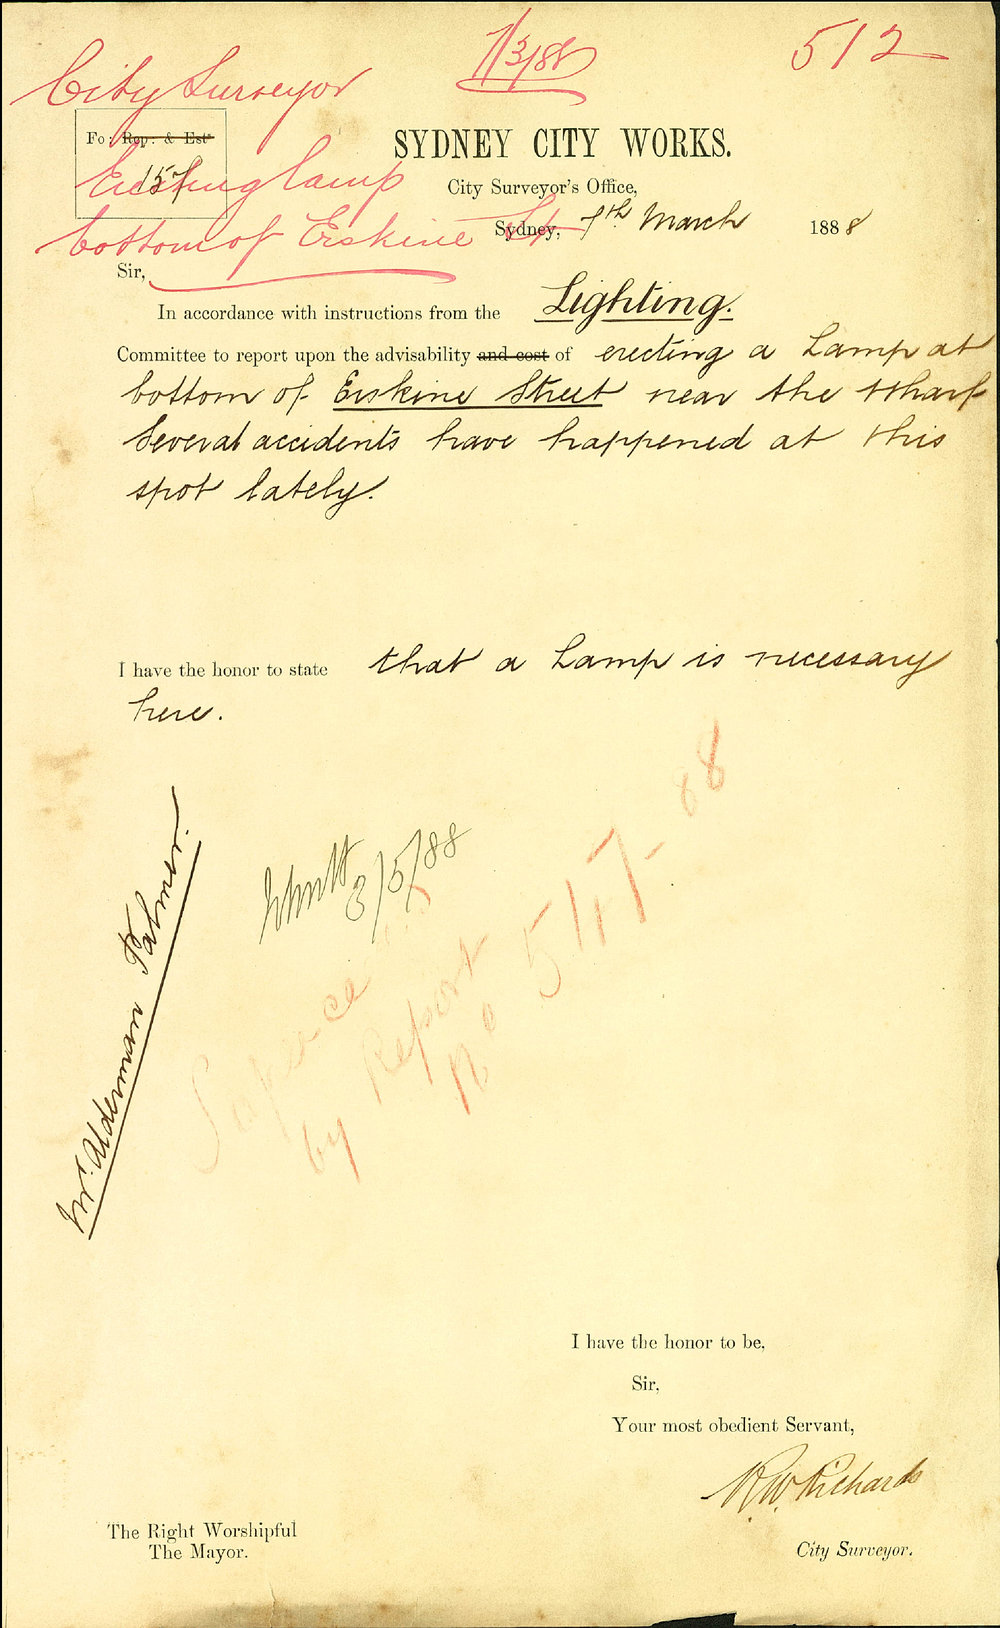 City Surveyor
7/3/88
512
Fo: Rep: & Est
157
SYDNEY CITY WORKS.
Erecting lamp
City Surveyor's Office,
bottom of Erskine St
Sydney, 7th March 1888
Sir,
In accordance with instructions from the Lighting.
Committee to report upon the advisability and cost of erecting a Lamp at
bottom of Erskine Street near the Wharf
Several accidents have happened at this
spot lately.
I have the honor to state that a Lamp is necessary
here.
Mr. Alderman Palmer.
3/5/88
by Report
No 547-88
I have the honor to be,
Sir,
Your most obedient Servant,
R W. Richards
City Surveyor.
The Right Worshipful
The Mayor.